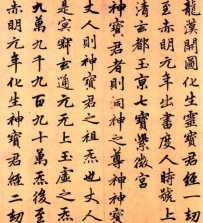 龍漢開圖化生靈寶君經一劫
至赤明元年出書度人時號上
清玄都玉京七寶紫微宮
神寶君者則洞神之尊神神寶
丈人則神寶君之祖炁也丈人
是冥寂玄通元無上玉虛之炁
九萬九千九百九十萬炁後至
赤明元年化生神寶君經二劫